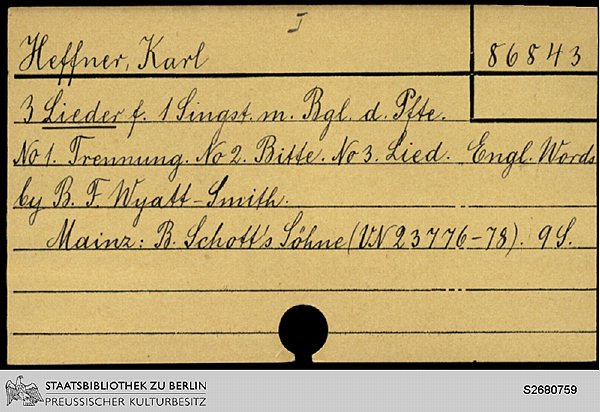 I
Heffner, Karl
86843
3 Lieder f. 1 Singst. m. Bgl. d. Pfte.
No 1. Trennung. No 2. Bitte. No 3. Lied. Engl. Words
by B. F. Wyatt-Smith.
Mainz: B. Schott's Söhne (VN 23776-78). 9 S.
STAATSBIBLIOTHEK ZU BERLIN
PREUSSISCHER KULTURBESITZ
S2680759